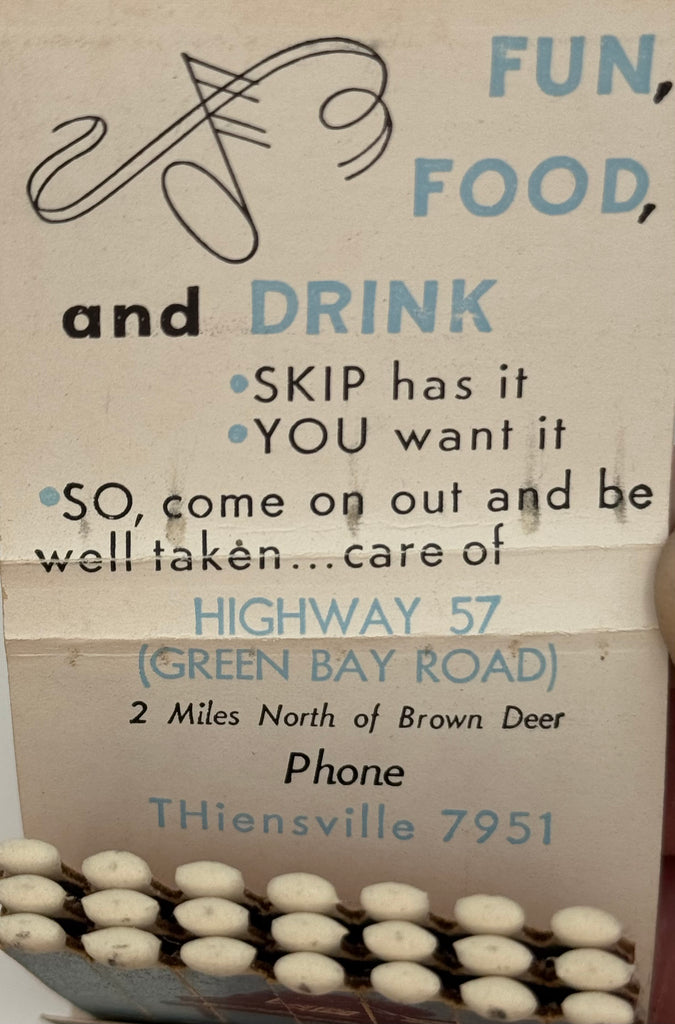 FUN,
FOOD,
and DRINK
•SKIP has it
•YOU want it
•SO, come on out and be
well taken...care of
HIGHWAY 57
(GREEN BAY ROAD)
2 Miles North of Brown Deer
Phone
THiensville 7951